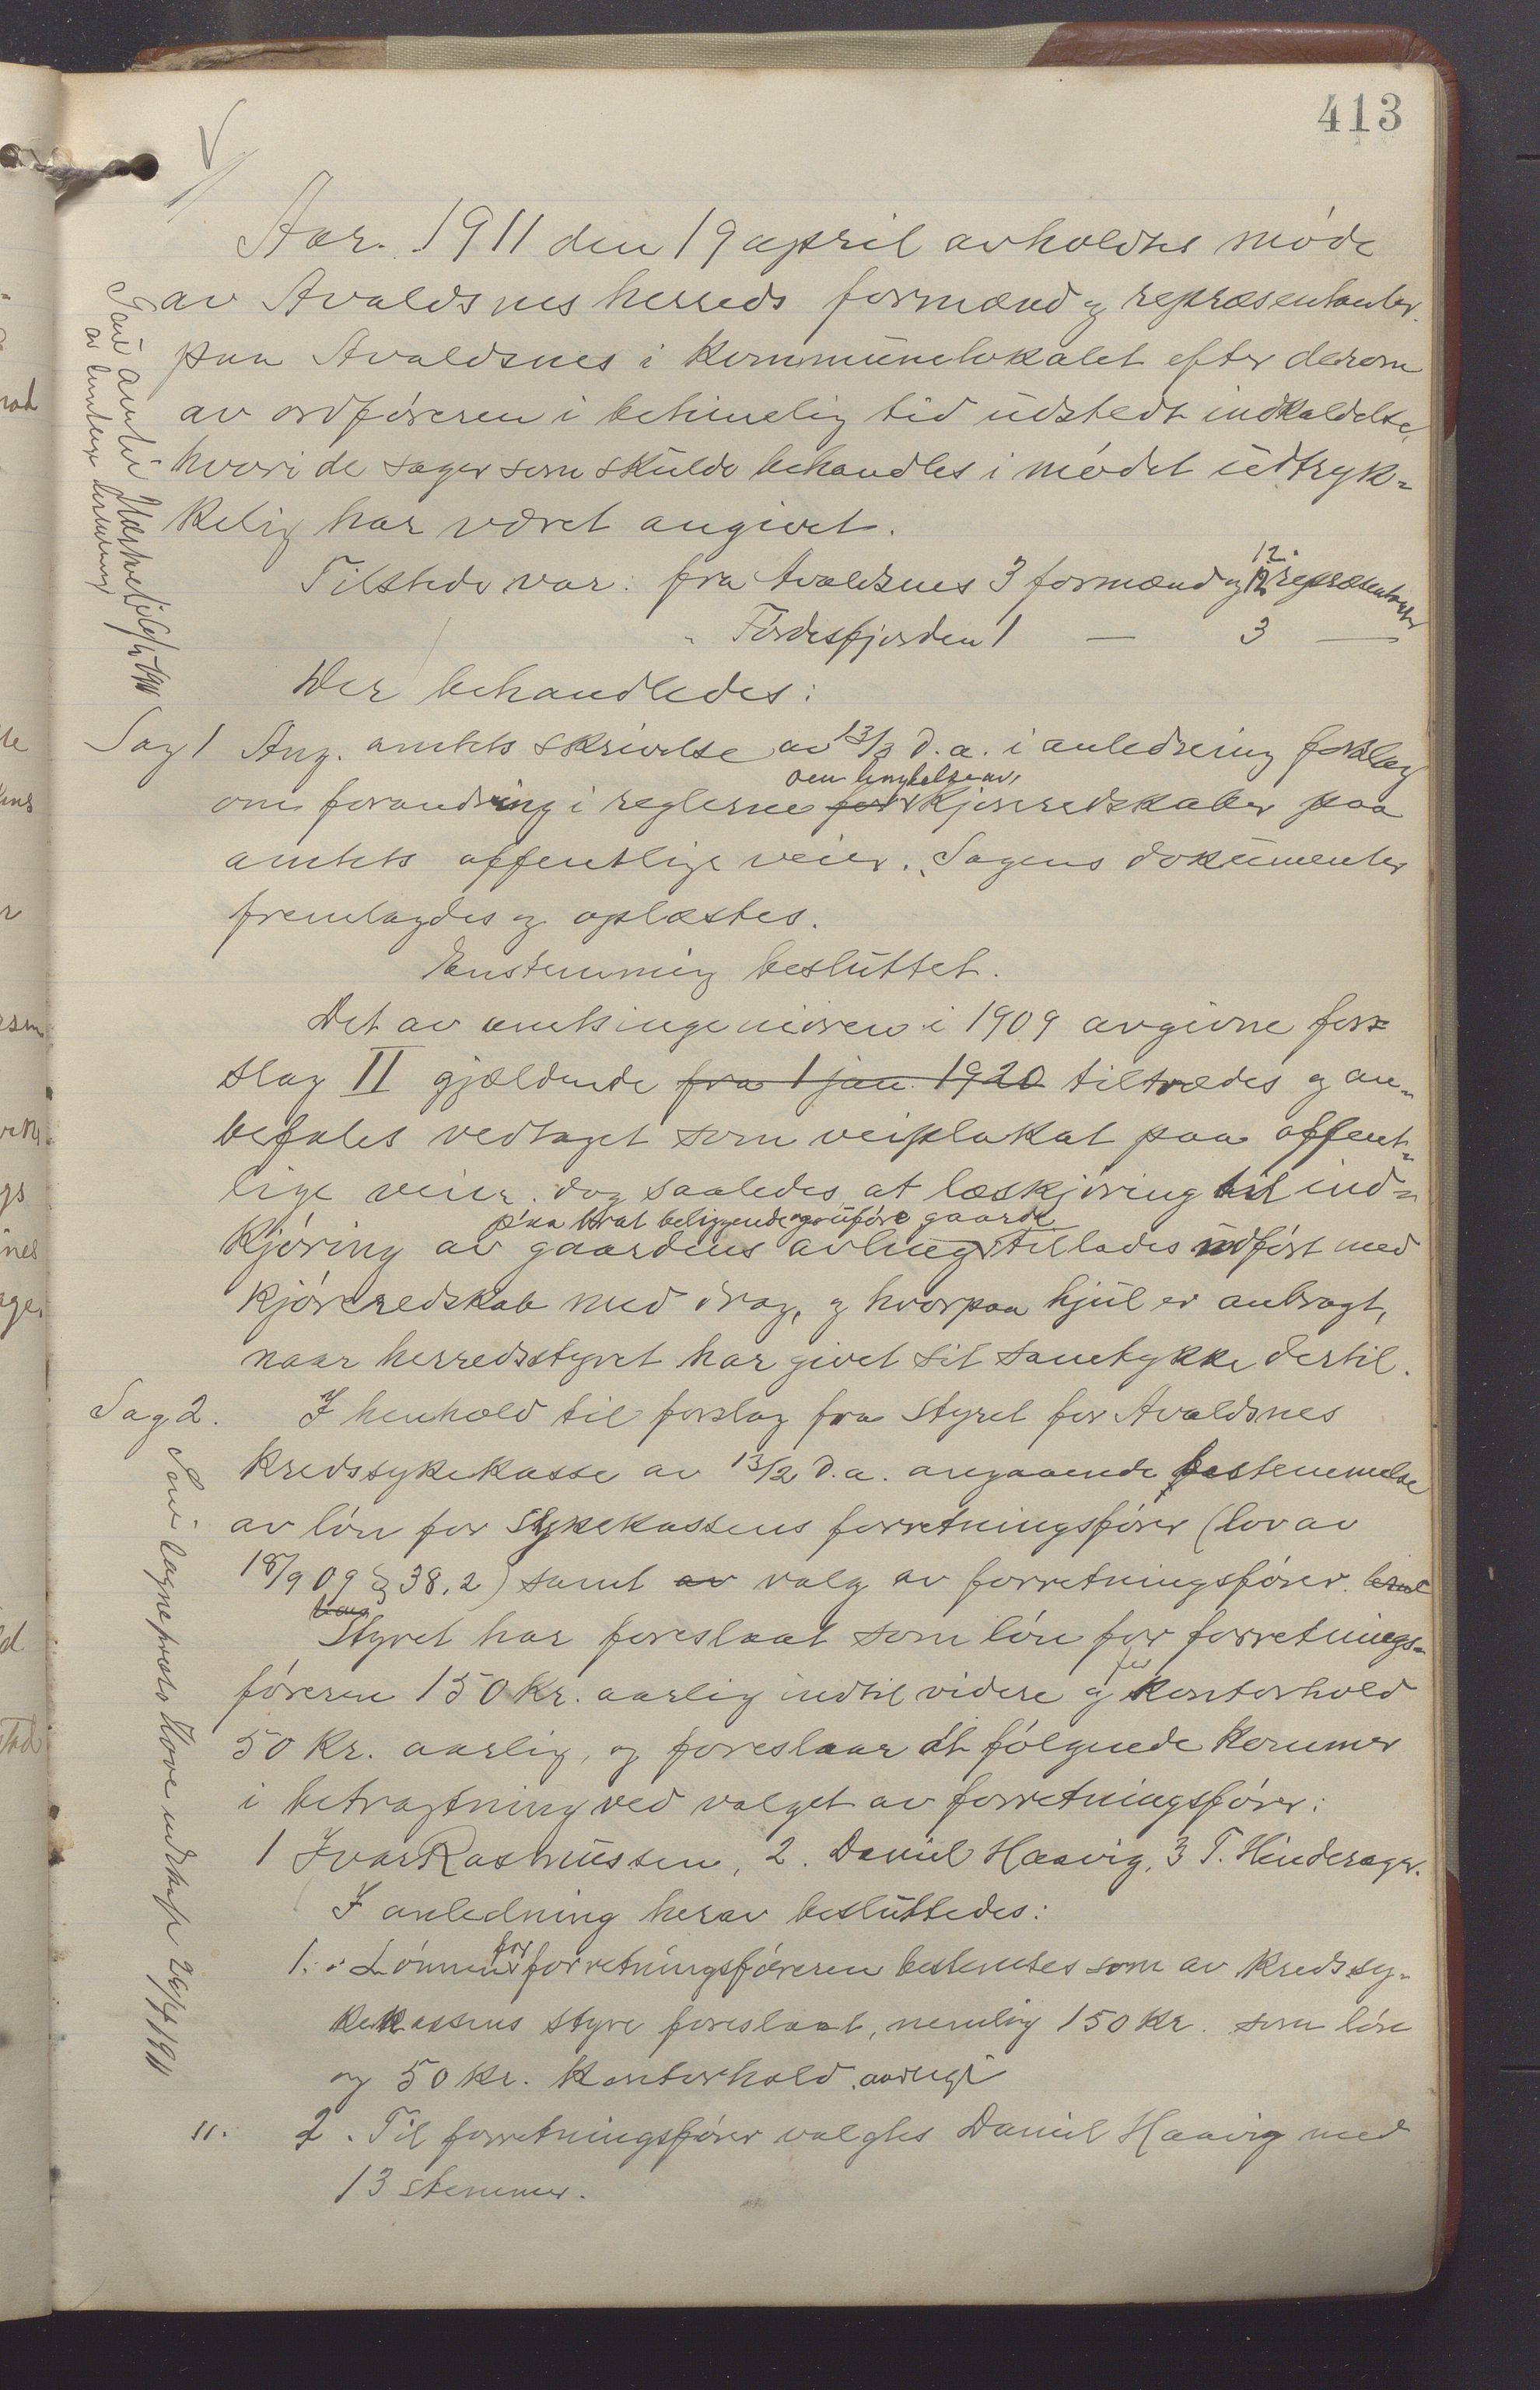 413
Aar. 1911 den 19 april avholdtes møde
av Avaldsnes herreds formænd og repræsentanter
paa Avaldsnes i Kommunelokalet efter derom
av ordføreren i betimelig tid udstedt indkaldelse,
hvori de sager som skulde behandles i mødet udtryk-
kelig har været angivet.
Tilstede var: fra Avaldsnes 3 formænd og 12 repræsentanter
" Førdesfjorden 1 — 3 —
Der behandledes:
Sag 1 Ang. amtets skrivelse av 13/3 d.a. i anledning forslag
om forandring i reglerne for om benyttelse av kjøreredskaber paa
amtets offentlige veier. Sagens dokumenter
fremlagdes og oplæstes.
Enstemmig besluttet.
Det av amtsingeniøren i 1909 avgivne for-
slag II gjældende fra 1 jan. 1920 tiltrædes og an-
befales vedtaget som veiplakat paa offent-
lige veier. dog saaledes at læskjøring til ind-
paa brat beliggende og uføre gaarde
kjøring av gaardens avling tillades udført med
kjøreredskab med drag, og hvorpaa hjul er anbragt,
naar herredsstyret har givet sit samtykke dertil.
Sag 2. I henhold til forslag fra styret for Avaldsnes
kredssykekasse av 13/2 d.a. angaaende bestemmelse
av løn for sykekassens forretningsfører (lov av
18/9 09 § 38,2) samt av valg av forretningsfører.
Styret har foreslaat som løn for forretnings-
føreren 150 kr. aarlig indtil videre og for kontorhold
50 kr. aarlig, og foreslaar at følgende kommer
i betragtning ved valget av forretningsfører:
1 Ivar Rasmussen, 2. Daniel Haavig, 3 T. Hinderager.
I anledning herav besluttedes:
1. Lønnen for forretningsføreren bestemtes som av kredssy-
kekassens styre foreslaat, nemlig 150 kr. som løn
og 50 kr. kontorhold aarligt
11. 2. Til forretningsfører valgtes Daniel Haavig med
13 stemmer.